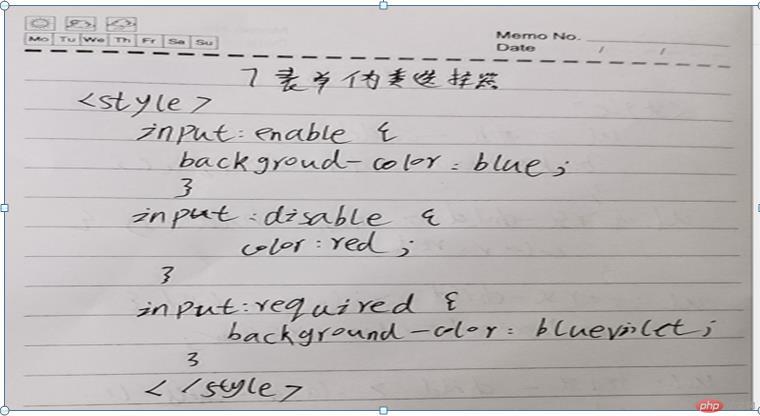 Mo Tu We Th Fr Sa Su
Memo No.
Date / /
7 表单伪类选择器
<style>
input:enable {
backgroud-color:blue;
}
input:disable {
color:red;
}
input:required {
background-color:blueviolet;
}
< </style>
php